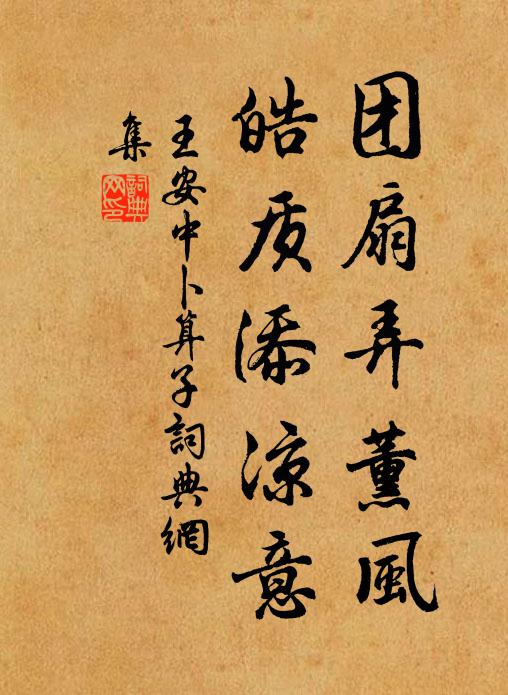 团扇弄薰风
皓质添凉意
王安中卜算子詞典網
集
詞典
网印